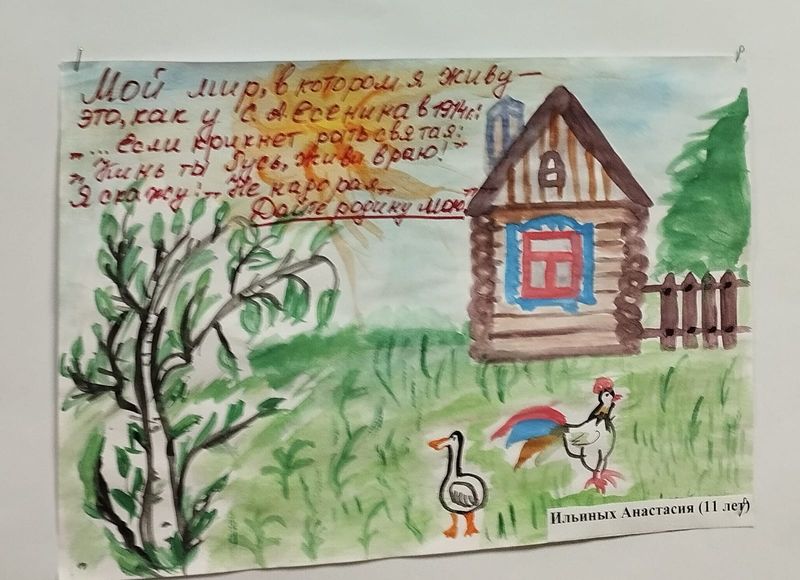 Мой мир, в котором я живу —
это, как у С. А. Есенина в 1914 г.:
"... Если крикнет рать святая:
"Кинь ты Русь, живи в раю!"
Я скажу: "Не надо рая..
Дайте родину мою"
Ильиных Анастасия (11 лет)